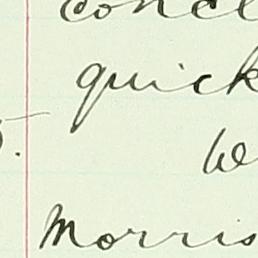 concl
quick
5.
be
Morris